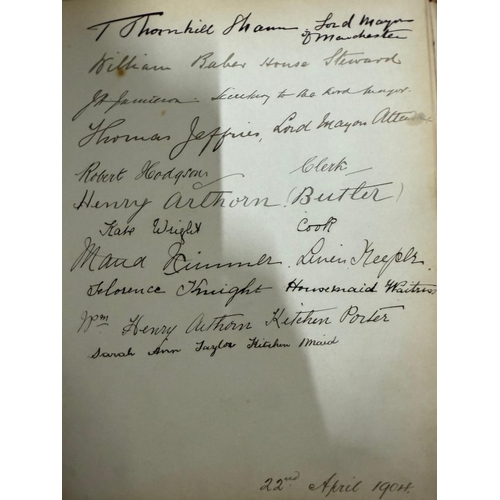 T Thornhill Shann - Lord Mayor
of Manchester
William Baber House Steward
Secretary to the Lord Mayor.
Thomas Jeffries, Lord Mayor
Robert Hodgson Clerk
Henry Arthorn (Butler)
Kate Wright Cook
Maud Linen Keeper.
Florence Knight Housemaid Waitress
Wm Henry Arthorn Kitchen Porter
Sarah Ann Taylor Kitchen Maid
22nd April 1904.